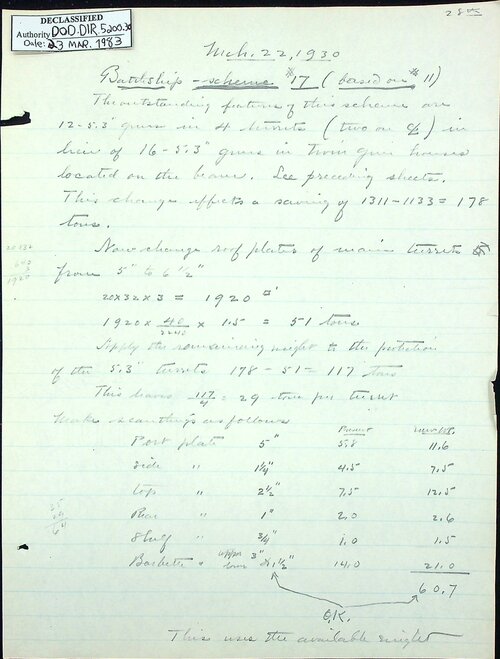 28
DECLASSIFIED
Authority DOD.DIR.5200.30
Date: 23 MAR. 1983
Mch. 22, 1930
Battleship - scheme #17 (based on #11)
The outstanding features of this scheme are
12-5.3" guns in 4 turrets (two on ℄) in
lieu of 16-5.3" guns in twin gun houses
located on the beam. See preceding sheets.
This change effects a saving of 1311-1133 = 178
tons.
Now change roof plates of main turrets
from 5" to 6 1/2"
20x32
1920
20x32x3 = 1920 □'
1920 x 40/2240 x 1.5 = 51 tons
Apply the remaining weight to the protection
of the 5.3" turrets 178-51 = 117 tons
This leaves 117/4 = 29 tons per turret
Make scantlings as follows
Present
Port plate 5" 5.8 11.6
Side " 1 1/4" 4.5 7.5
Top " 2 1/2" 7.5 12.5
Rear " 1" 2.0 2.6
Shelf " 3/4" 1.0 1.5
Barbette " upper 3" lower 1 1/2" 14.0 21.0
60.7
O.K.
This uses the available weight